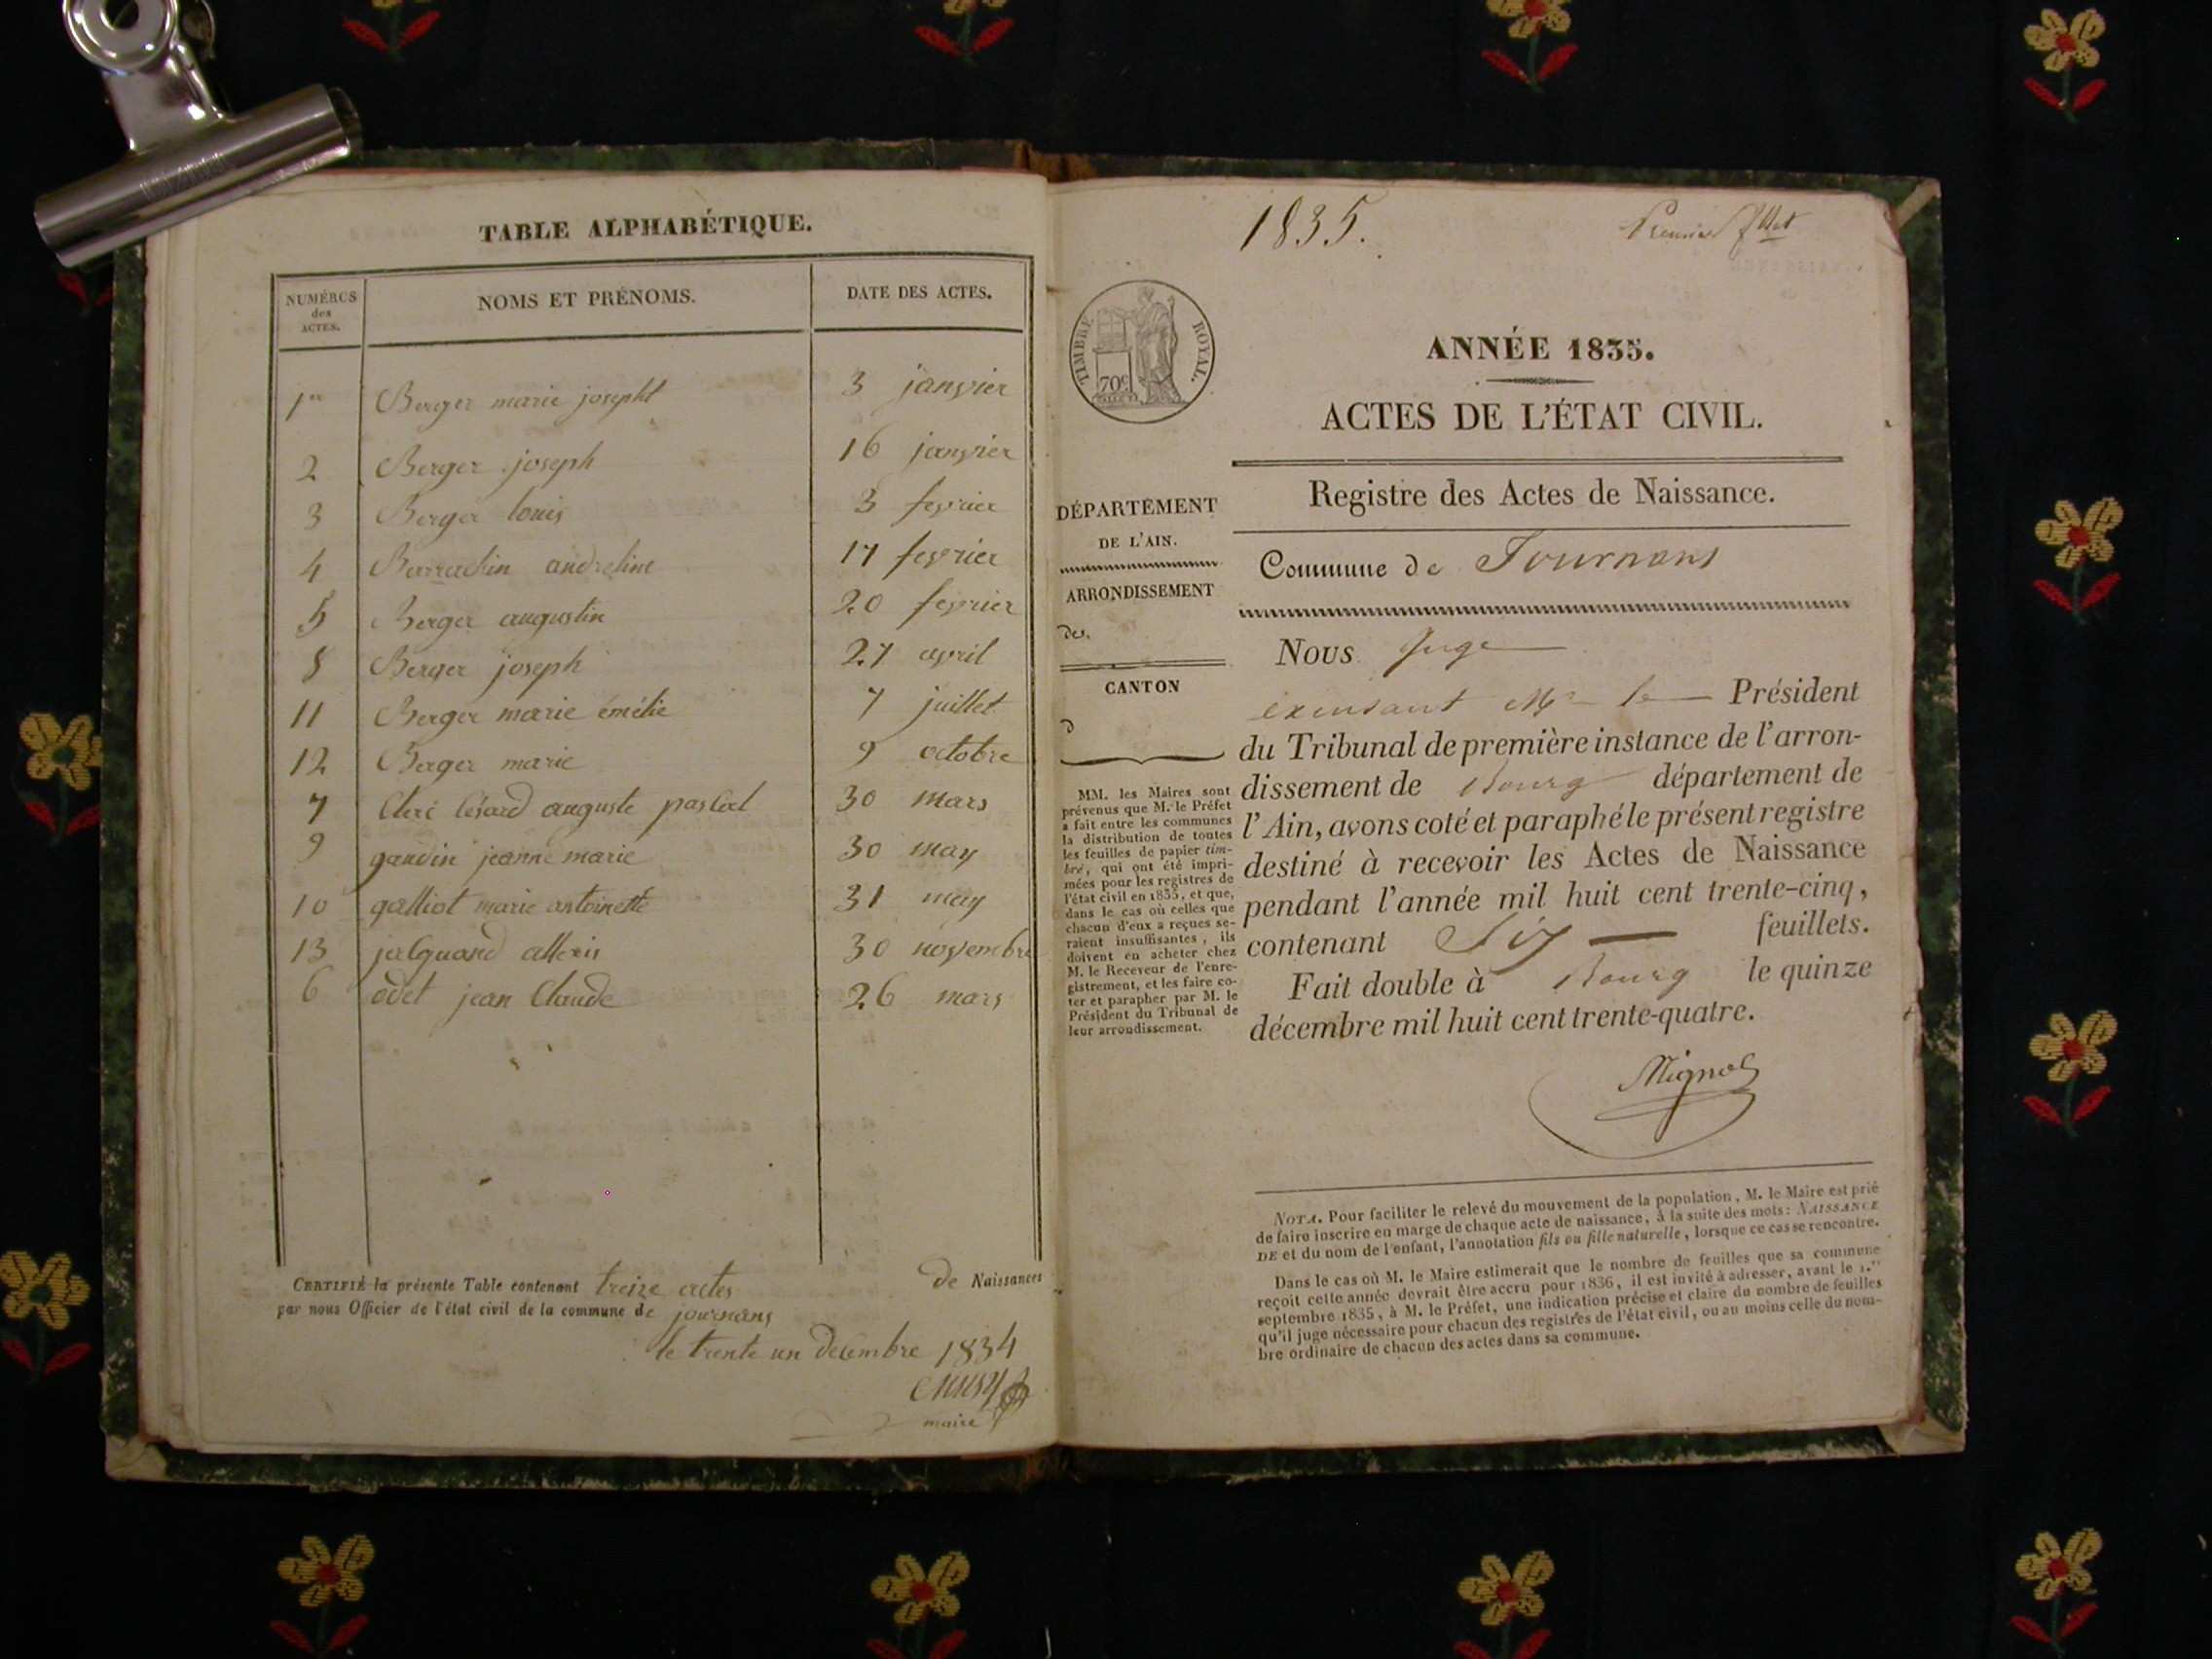 TABLE ALPHABÉTIQUE.
NUMÉROS des ACTES. NOMS ET PRÉNOMS. DATE DES ACTES.
1er Berger marie josepht 3 janvier
2 Berger joseph 16 janvier
3 Berger louis 3 fevrier
4 Barrachin andreline 17 fevrier
5 Berger augustin 20 fevrier
8 Berger joseph 27 avril
11 Berger marie émélie 7 juillet
12 Berger marie 9 octobre
7 Clerc Césard auguste pascal 30 mars
9 gaudin jeanne marie 30 may
10 galliot marie antoinette 31 may
13 jalquand allexis 30 novembre
6 odet jean Claude 26 mars
CERTIFIÉ la présente Table contenant treize actes de Naissances
par nous Officier de l'état civil de la commune de journans
le trente un decembre 1834
maire
1835.
Premier
TIMBRE ROYAL.
70c
ANNÉE 1835.
ACTES DE L'ÉTAT CIVIL.
Registre des Actes de Naissance.
DÉPARTEMENT
DE L'AIN.
ARRONDISSEMENT
de
CANTON
d
MM. les Maires sont
prévenus que M. le Préfet
a fait entre les communes
la distribution de toutes
les feuilles de papier tim-
bré, qui ont été impri-
mées pour les registres de
l'état civil en 1835, et que,
dans le cas où celles que
chacun d'eux a reçues se-
raient insuffisantes, ils
doivent en acheter chez
M. le Receveur de l'enre-
gistrement, et les faire co-
ter et parapher par M. le
Président du Tribunal de
leur arrondissement.
Commune de Journans
Nous Juge
exerçant Mr le Président
du Tribunal de première instance de l'arron-
dissement de Bourg département de
l'Ain, avons coté et paraphé le présent registre
destiné à recevoir les Actes de Naissance
pendant l'année mil huit cent trente-cinq,
contenant Six feuillets.
Fait double à Bourg le quinze
décembre mil huit cent trente-quatre.
NOTA. Pour faciliter le relevé du mouvement de la population, M. le Maire est prié
de faire inscrire en marge de chaque acte de naissance, à la suite des mots: NAISSANCE
DE et du nom de l'enfant, l'annotation fils ou fille naturelle, lorsque ce cas se rencontre.
Dans le cas où M. le Maire estimerait que le nombre de feuilles que sa commune
reçoit cette année devrait être accru pour 1836, il est invité à adresser, avant le 1.er
septembre 1835, à M. le Préfet, une indication précise et claire du nombre de feuilles
qu'il juge nécessaire pour chacun des registres de l'état civil, ou au moins celle du nom-
bre ordinaire de chacun des actes dans sa commune.